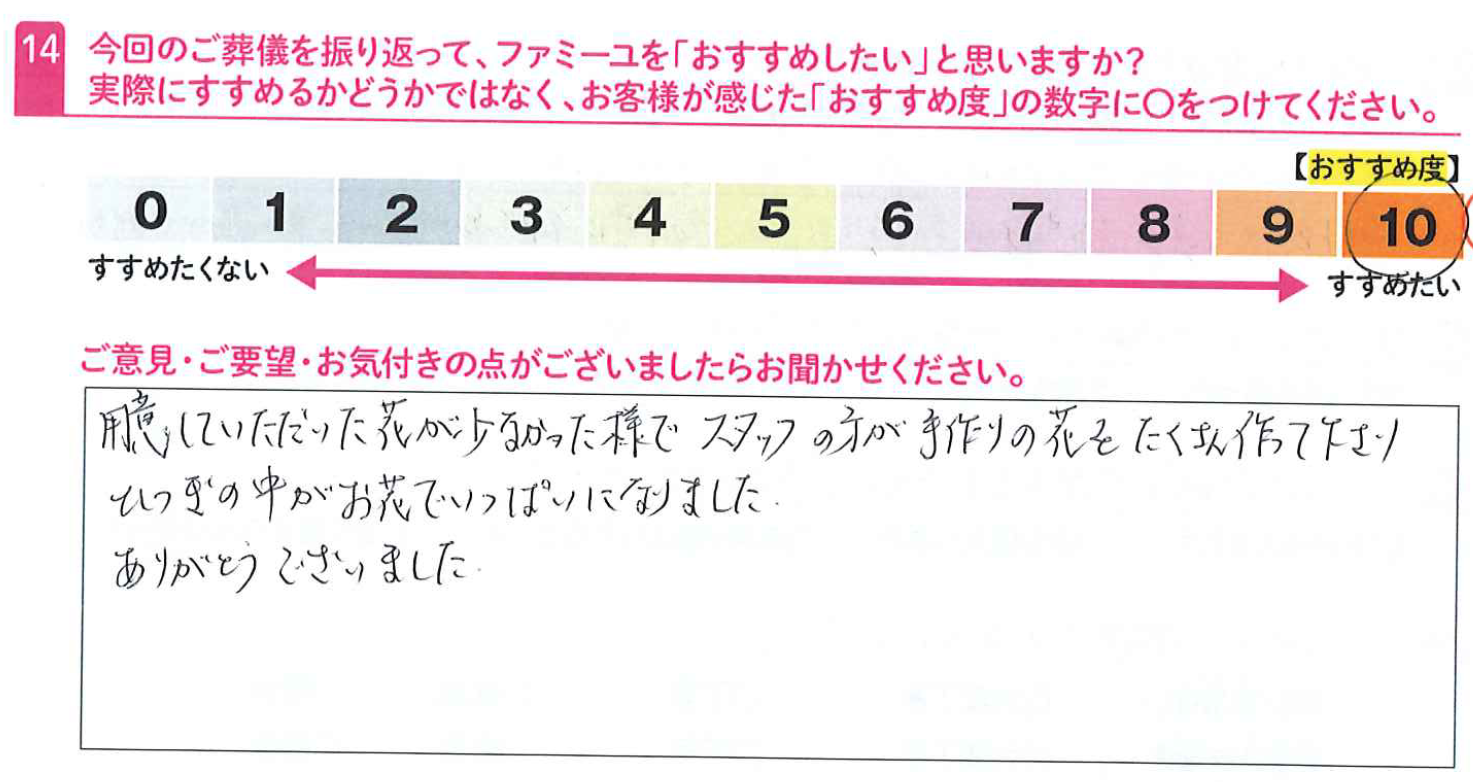 14
今回のご葬儀を振り返って、ファミーユを「おすすめしたい」と思いますか?
実際にすすめるかどうかではなく、お客様が感じた「おすすめ度」の数字に〇をつけてください。
【おすすめ度】
0 1 2 3 4 5 6 7 8 9 10
すすめたくない すすめたい
ご意見・ご要望・お気付きの点がございましたらお聞かせください。
用意していただいた花が少なかった様で スタッフの方が手作りの花をたくさん作って下さり
ひつぎの中がお花でいっぱいになりました.
ありがとうございました.